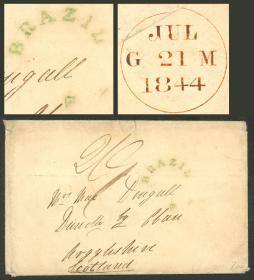 BRAZIL
JUL
G 21 M
1844
2/9
BRAZIL
Mrs Mac Dougall
by Oban
Argyleshire
Scotland